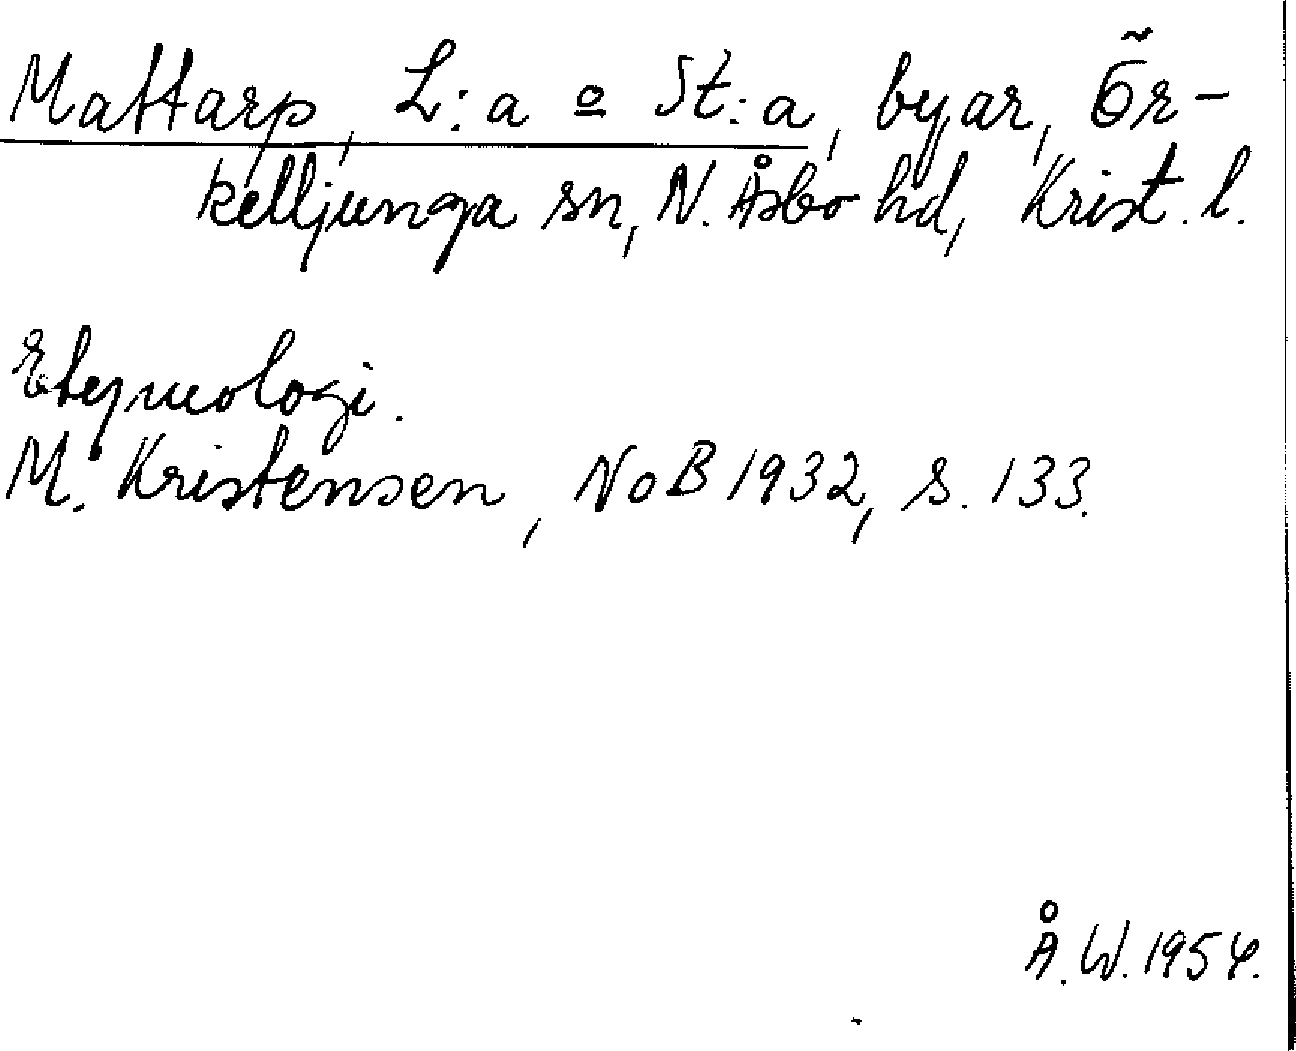 Mattarp, L:a o St:a, byar, Ör-
kelljunga sn, N. Åsbo hd, Krist. l.
Etymologi.
M. Kristensen, NoB 1932, s. 133.
Å. W. 1954.